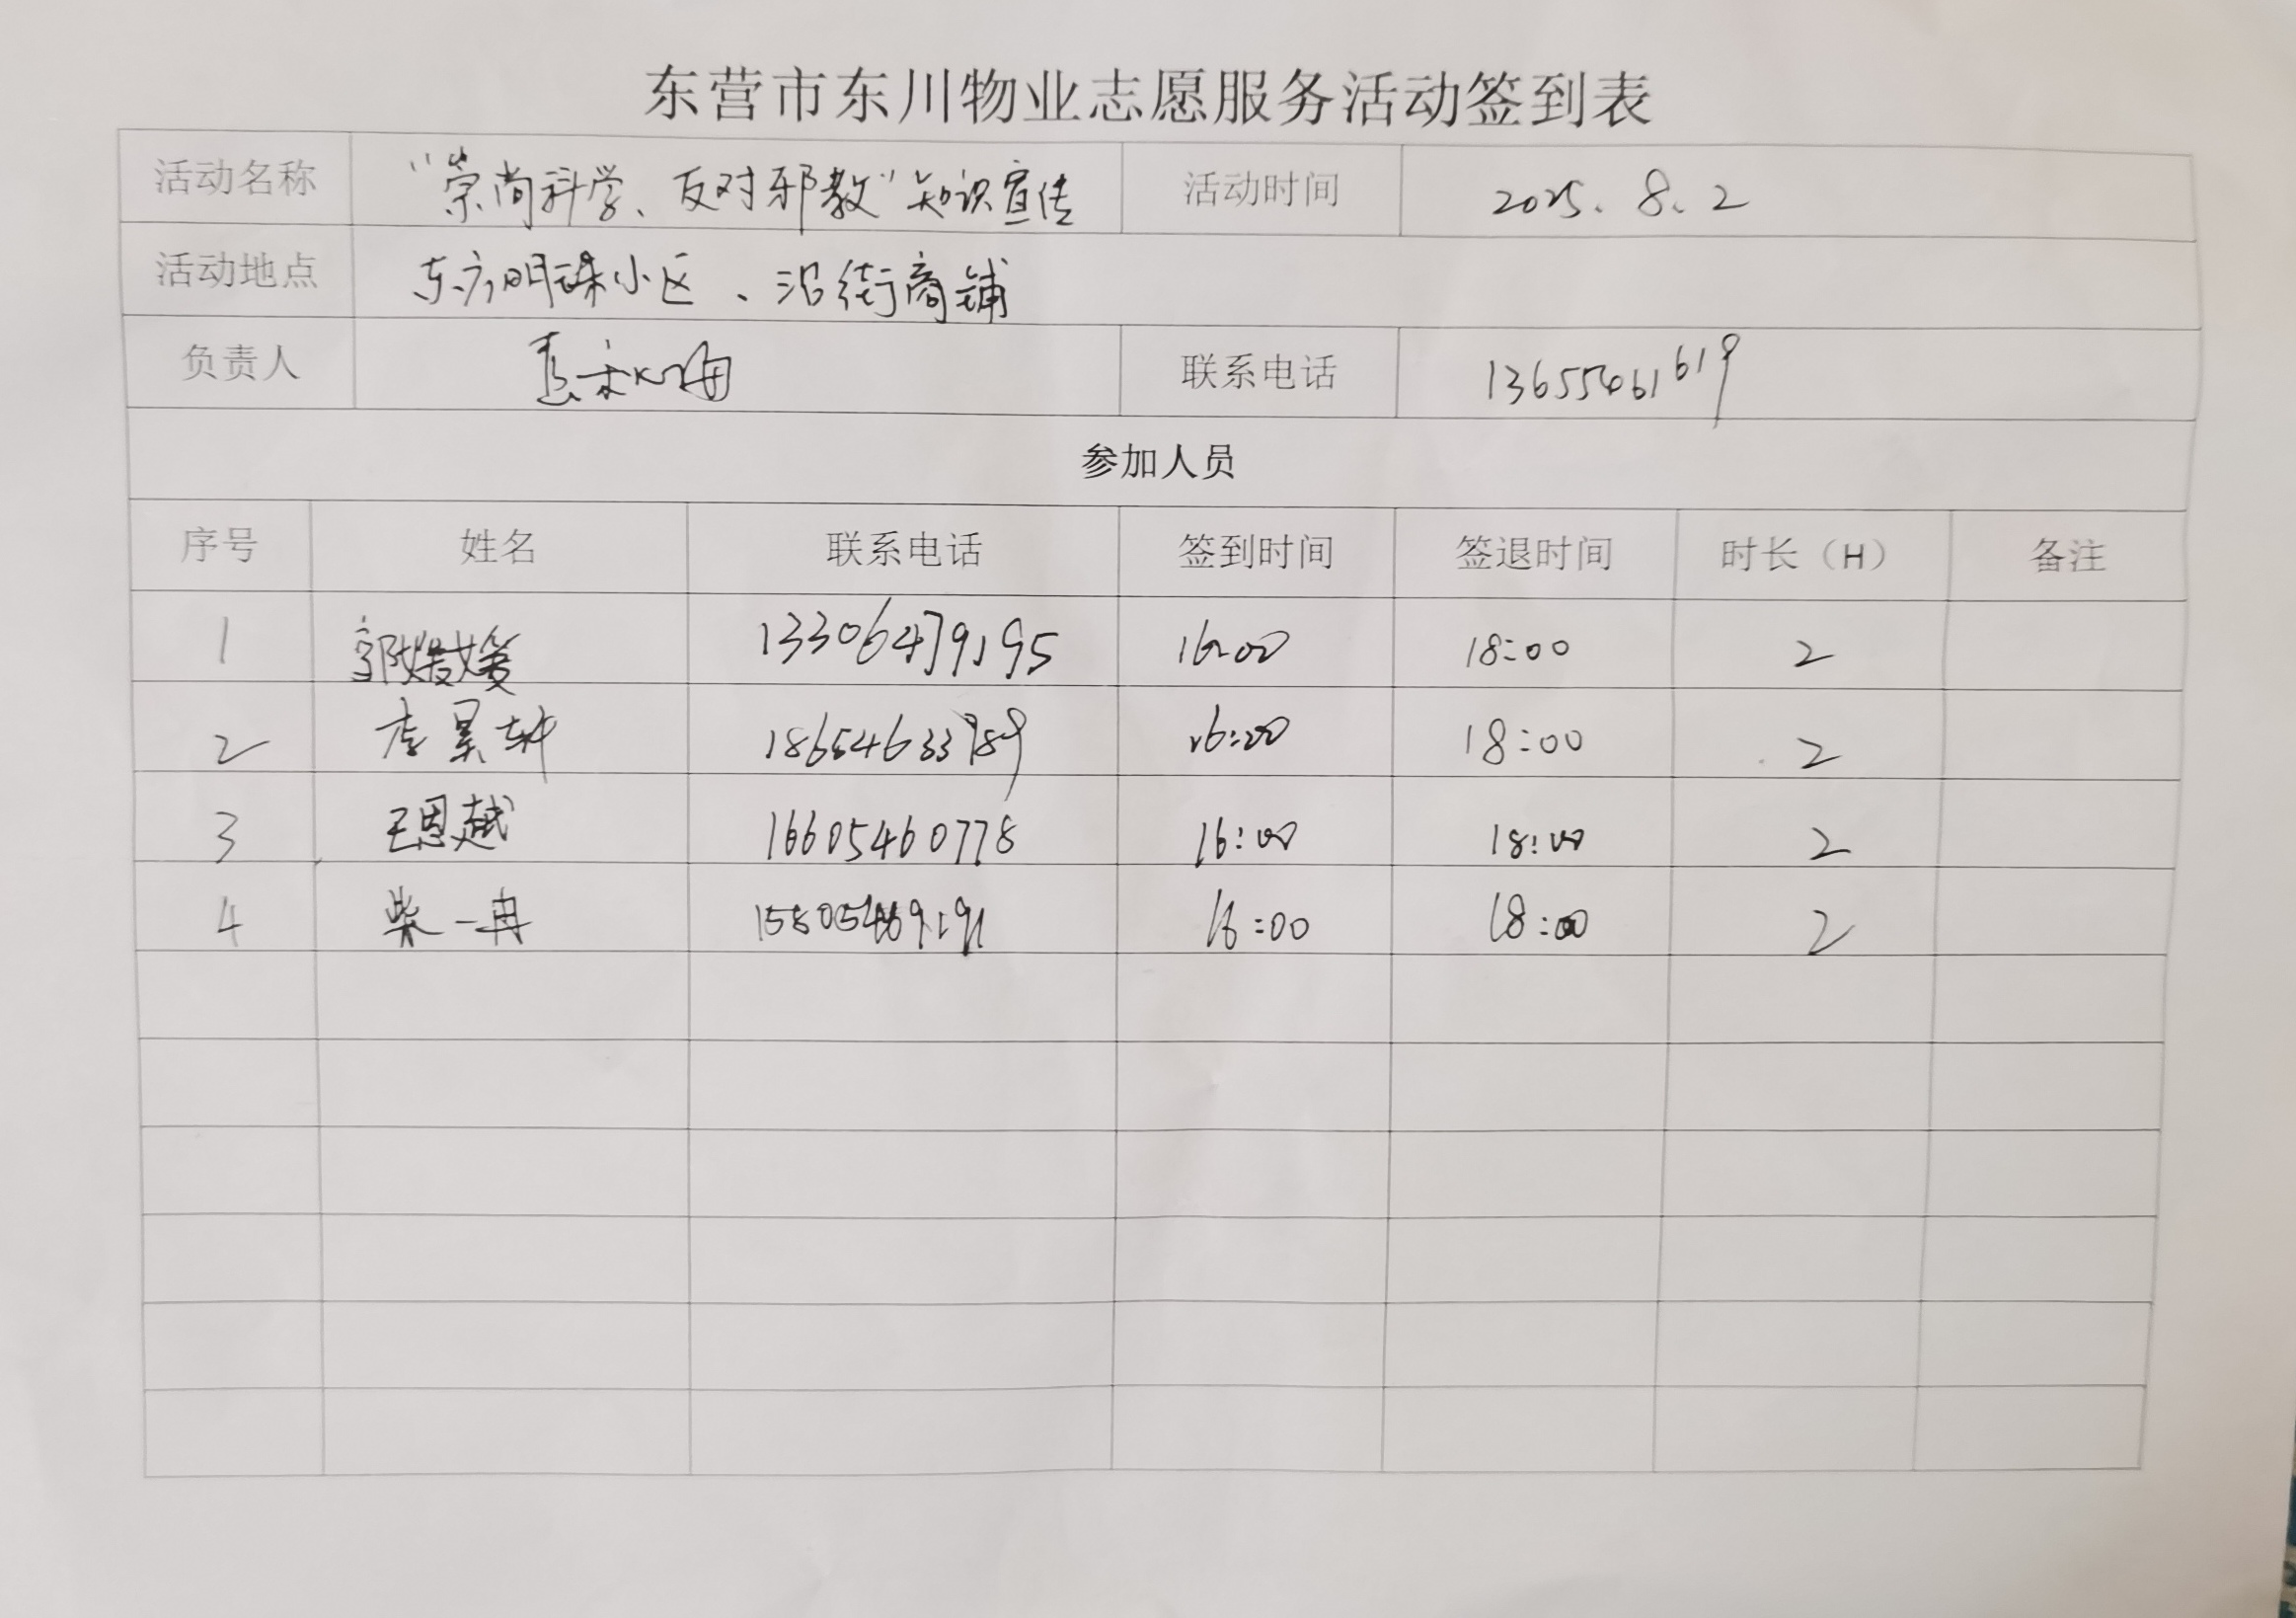 东营市东川物业志愿服务活动签到表
活动名称 “崇尚科学、反对邪教”知识宣传 活动时间 2025.8.2
活动地点 东方明珠小区、沿街商铺
负责人 联系电话 13655461619
参加人员
序号 姓名 联系电话 签到时间 签退时间 时长（H） 备注
1 13306479195 16:00 18:00 2
2 李昊轩 18654633789 16:00 18:00 2
3 王恩越 16605460778 16:00 18:00 2
4 柴一冉 16:00 18:00 2